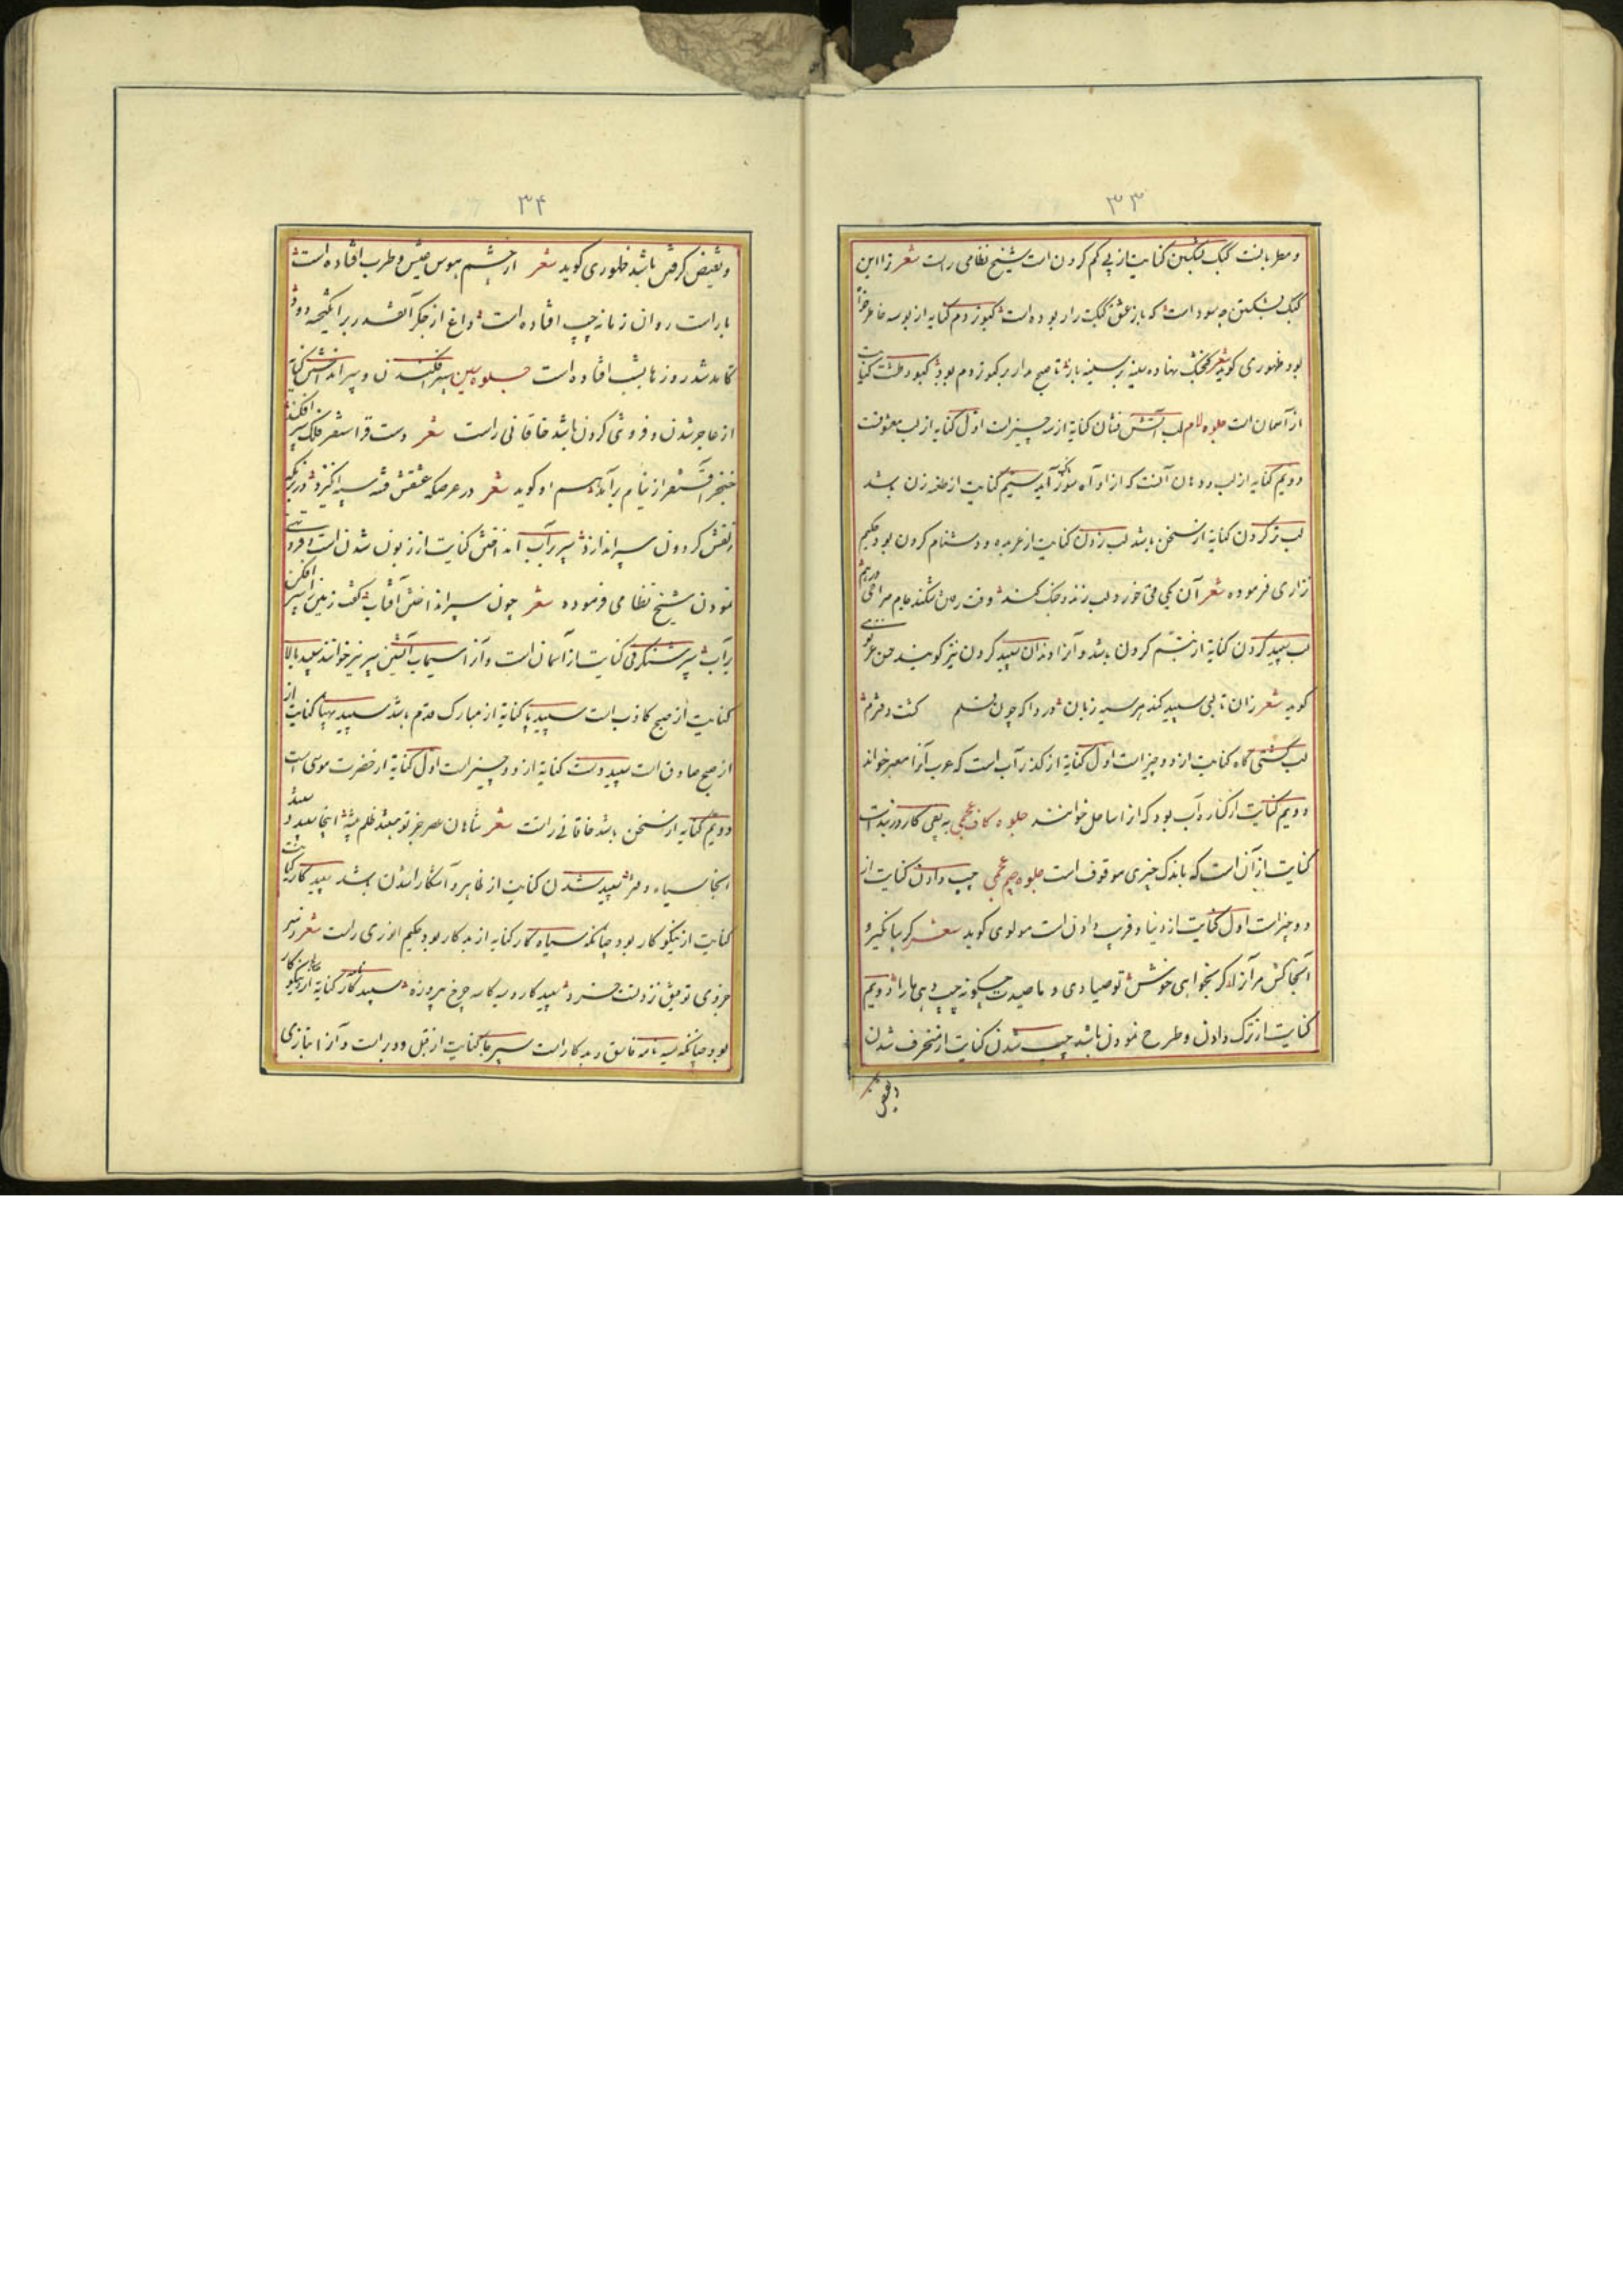 ۳۳
و معطر یافت کبک شکستن کنایت از پی گم کردن است شیخ نظامی راست شعر از این
کبک شکستن چه سود است که باز عشق کبکت را ربوده است کبوتر دم کنایه از بوسه خاطرخواه
بود ظهوری گوید شعر نهاده سینه بر سینه باز تا صبح مدار بر کبوتر دم بود کبود طشت کنایت
از آسمان است جلوه لام لب آتش فشان کنایه از سه چیز است اول کنایه از لب معشوقست
دویم کنایه از لب و دهان آنست که از او آه سوزناک آید سیم کنایت از طعنه زن باشد
لب تر کردن کنایه از سخن باشد لب زدن کنایت از عربده و دشنام کردن بود حکیم
نزاری فرموده شعر آن یکی می خورد لب زند و جنگ کند وقت رفتن شکند جام صراحی درهم
لب سپید کردن کنایه از تبسّم کردن باشد و آنرا دندان سپید کردن نیز گویند حسن غزنوی
گوید شعر زان تا لبی سپید کند هر سیه زبان دردا که چون قلم گشت دفترم
لب کشتی گاه کنایت از دو چیز است اول کنایه از گذر آب است که عرب آنرا معبر خواند
دویم کنایت از کناره آب بود که آنرا ساحل خوانند جلوه کاف عجمی به پفی کار در بند است
کنایت از آن است که باندک چیزی موقوف است جلوه جیم عجمی چپ دادن کنایت از
دو چیز است اول کنایت از دنیا و فریب دادن است مولوی گوید شعر گریبانگیر و
آنجا کش مرآنرا که بخواهی خوش تو صیادی و ما صیدت چگونه چپ دهی ما را دویم
کنایت از ترک دادن و طرح نمودن باشد چپ شدن کنایت از منحرف شدن
و نقیض
۳۴
و نقیض گرفتن باشد ظهوری گوید شعر از چشم هوس عیش و طرب افتاده است
با راست روان زمانه چپ افتاده است داغ از جگر آنقدر برانگیخه دود
کامد شد روزها بشب افتاده است جلوه سین سپر فکندن و سپر انداختن کنایه
از عاجز شدن و فروتنی کردن باشد خاقانی راست شعر دست قراسنقر فلک سپر افکند
خنجر آقسنقر از نیام برآمد هم او گوید شعر در عرصگه عشقش فتنه سپه انگیزد در رزمگه
زلفش گردون سپر اندازد سپر بر آب انداختن کنایت از زبون شدن است و فروتنی
نمودن شیخ نظامی فرموده شعر چون سپر انداختن آفتاب گفت زمین را سپر افکن
بر آب سپر شنگرفی کنایت از آسمان است و آنرا سیماب آتشین سپر نیز خوانند سپید بالا
کنایت از صبح کاذب است سپید پا کنایه از مبارک قدم باشد سپید مهنا کنایت از
از صبح صادق است سپید دست کنایه از دو چیز است اول کنایه از حضرت موسی است
دویم کنایه از سخن باشد خاقانی راست شعر شاهان عصر جز تو هستند ظلم پیشه اینجا سپید دستند
آنجا سیاه دفتر سپید شدن کنایت از ظاهر و آشکارا شدن باشد سپید کار کنایت
کنایت از نیکوکار بود چنانکه سیاه کار کنایه از بدکار بود حکیم انوری راست شعر
جز وی توفیق ز دولت خسرو سپید کار و سیه کاسه چرخ پیروزه سپید نامه کنایه از نیکوکار
بود چنانکه سیه نامه فاسق و بدکار است سپر جا کنایت از نقل و دور است و آنرا بتازی